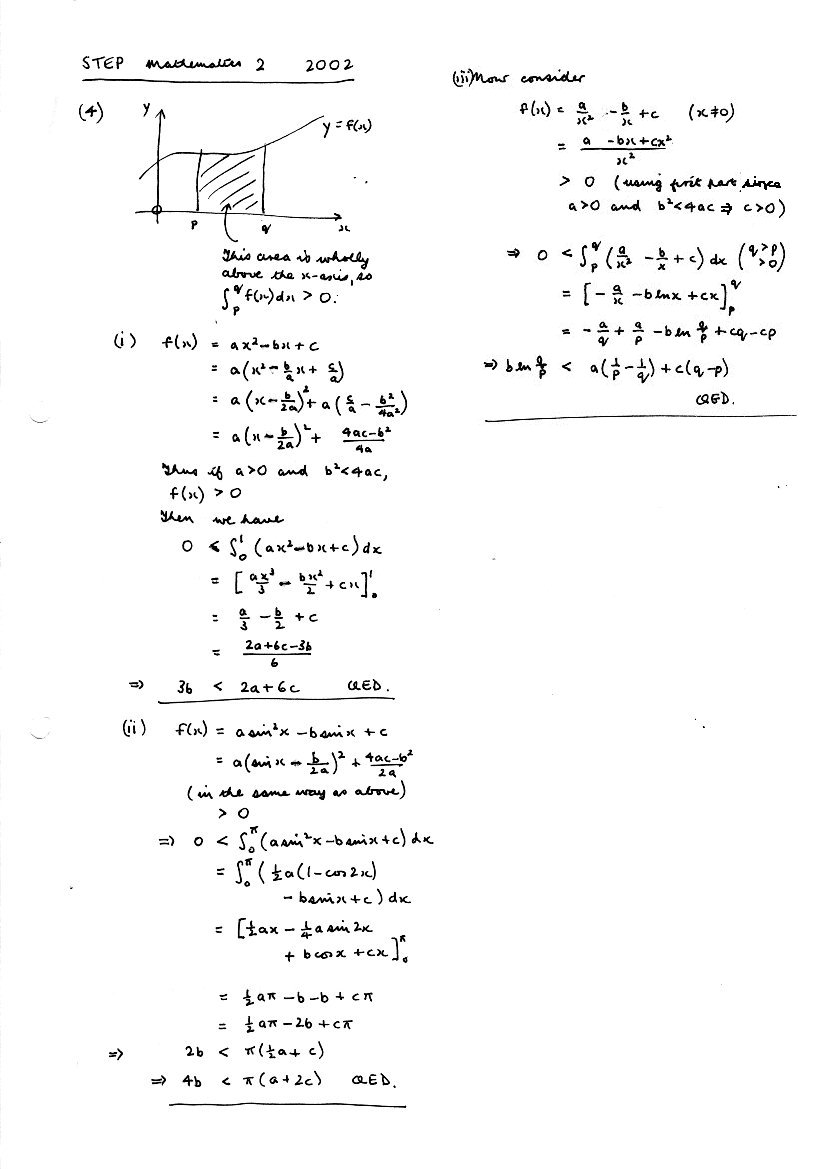 STEP Mathematics 2 2002
(4)
y
y = f(x)
O p q x
This area is wholly
above the x-axis, so
∫_p^q f(x)dx > 0.
(i) f(x) = ax² - bx + c
= a(x² - b/a x + c/a)
= a(x - b/2a)² + a(c/a - b²/4a²)
= a(x - b/2a)² + (4ac-b²)/4a
Thus if a>0 and b²<4ac,
f(x) > 0
Then we have
0 < ∫_0^1 (ax²-bx+c)dx
= [ax³/3 - bx²/2 + cx]_0^1
= a/3 - b/2 + c
= (2a+6c-3b)/6
⇒ 3b < 2a+6c QED.
(ii) f(x) = a sin²x - b sin x + c
= a(sin x - b/2a)² + (4ac-b²)/2a
(in the same way as above)
> 0
⇒ 0 < ∫_0^π (a sin²x - b sin x + c) dx
= ∫_0^π (½a(1-cos 2x)
- b sin x + c) dx
= [½ax - ¼a sin 2x
+ b cos x + cx]_0^π
= ½aπ - b - b + cπ
= ½aπ - 2b + cπ
⇒ 2b < π(½a + c)
⇒ 4b < π(a+2c) QED.
(iii) Now consider
f(x) = a/x² - b/x + c (x≠0)
= (a - bx + cx²)/x²
> 0 (using first part, since
a>0 and b²<4ac ⇒ c>0)
⇒ 0 < ∫_p^q (a/x² - b/x + c) dx (q>p >0)
= [-a/x - b ln x + cx]_p^q
= -a/q + a/p - b ln q/p + cq - cp
⇒ b ln q/p < a(1/p - 1/q) + c(q-p)
QED.